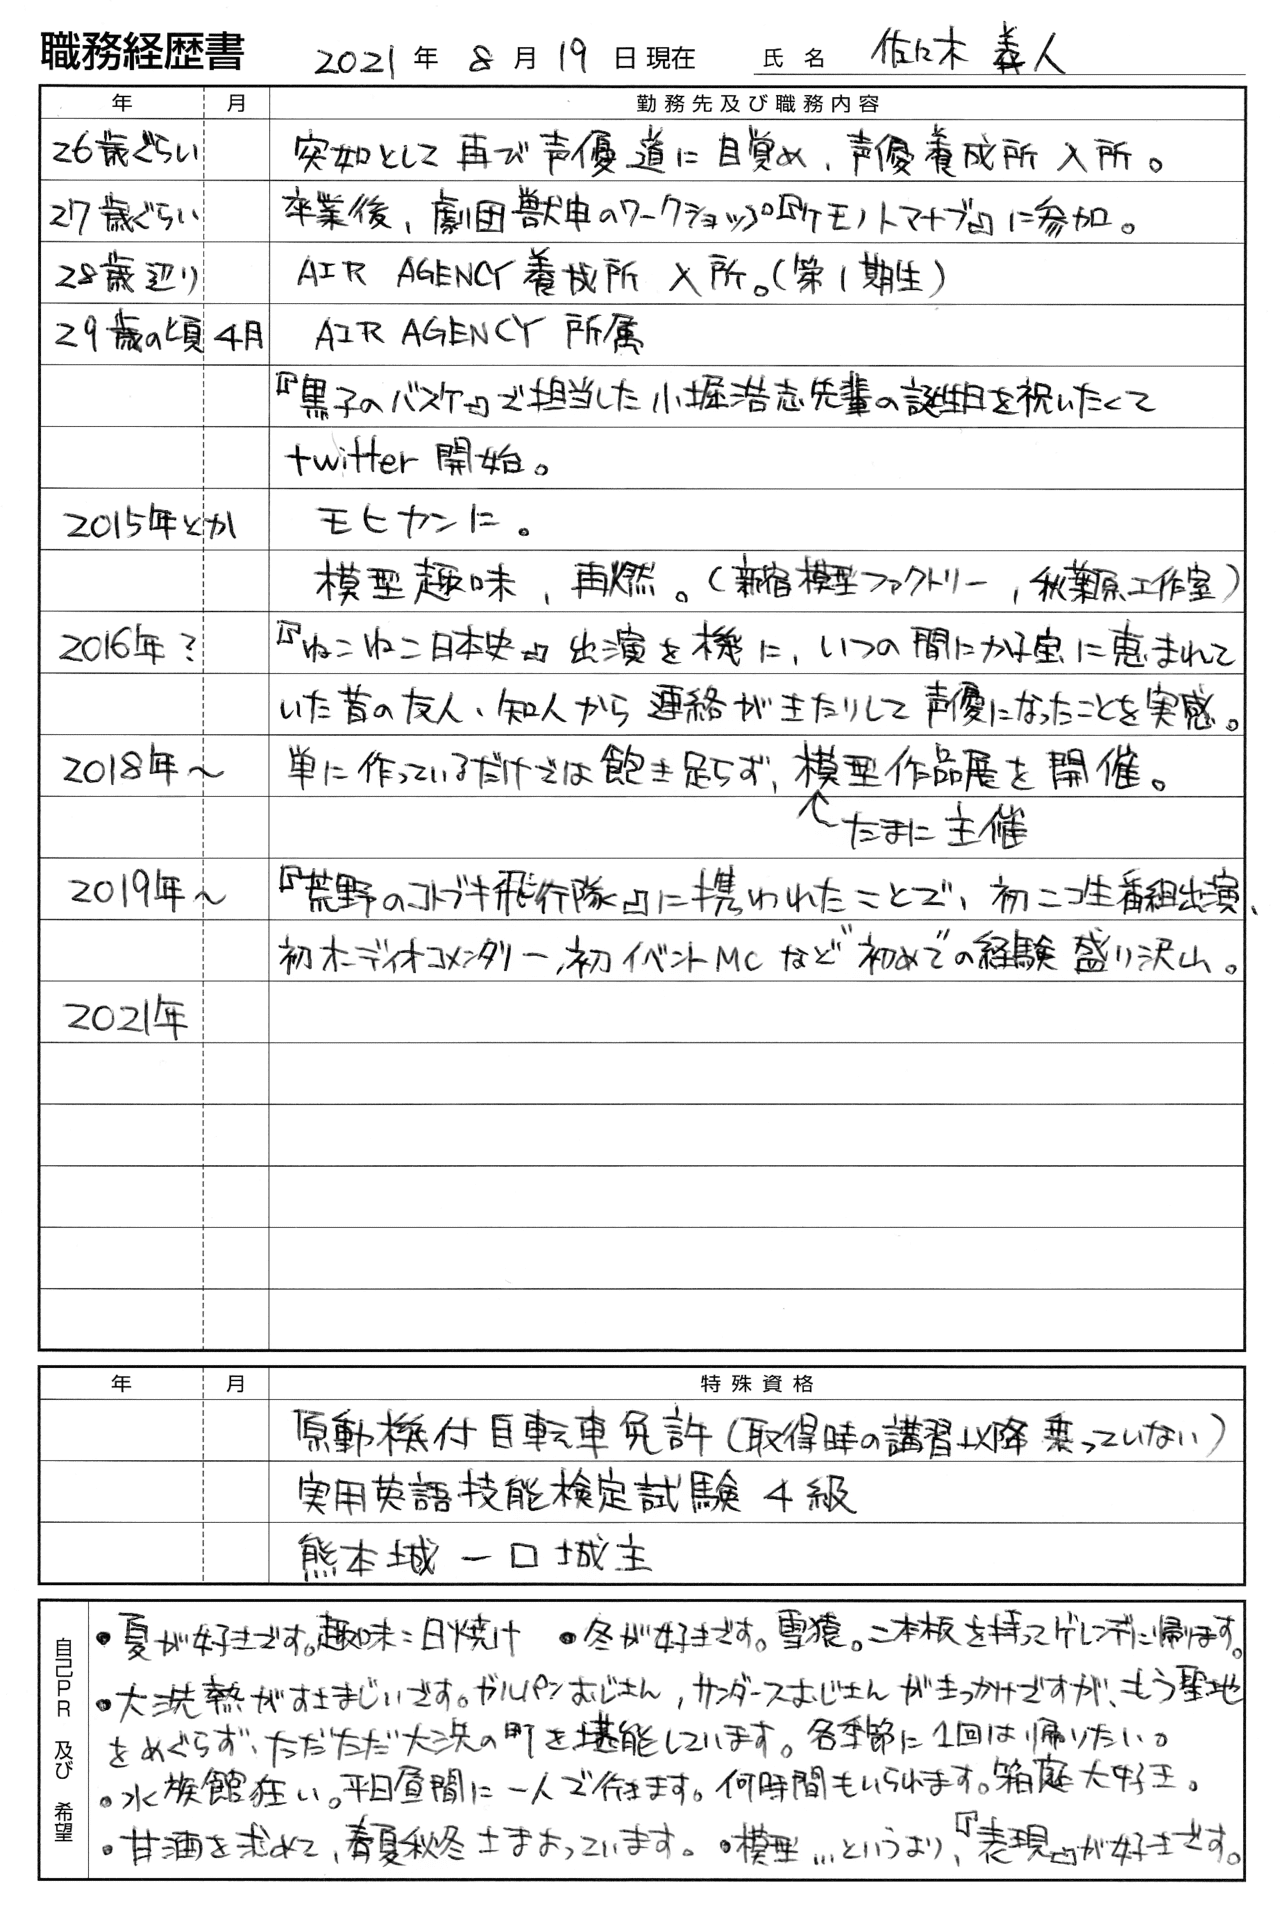 職務経歴書 2021年 8月 19日現在 氏名 佐々木 義人
年 月 勤務先及び職務内容
26歳ぐらい 突如として再び声優道に目覚め、声優養成所入所。
27歳ぐらい 卒業後、劇団獣申のワークショップ『ケモノトマナブ』に参加。
28歳辺り AIR AGENCY養成所 入所。(第1期生)
29歳の頃 4月 AIR AGENCY 所属
『黒子のバスケ』で担当した小堀浩志先輩の誕生日を祝いたくて
twitter 開始。
2015年とか モヒカンに。
模型趣味、再燃。(新宿模型ファクトリー、秋葉原工作室)
2016年? 『ねこねこ日本史』出演を機に、いつの間にか子宝に恵まれて
いた昔の友人、知人から連絡がきたりして声優になったことを実感。
2018年～ 単に作っているだけでは飽き足らず、模型作品展を開催。
↑たまに主催
2019年～ 『荒野のコトブキ飛行隊』に携われたことで、初ニコ生番組出演、
初オーディオコメンタリー、初イベントMCなど"初めて"の経験盛り沢山。
2021年
年 月 特殊資格
原動機付自転車免許(取得時の講習以降乗っていない)
実用英語技能検定試験 4級
熊本城 一口城主
自己PR 及び 希望
●夏が好きです。趣味:日焼け ●冬が好きです。雪猿。二本板を持ってゲレンデに帰ります。
●大洗熱がすさまじいです。ガルパンおじさん、サンダースおじさんがきっかけですが、もう聖地
をめぐらず、ただただ大洗の町を堪能しています。各季節に1回は帰りたい。
●水族館狂い。平日昼間に一人で行きます。何時間もいられます。箱庭大好き。
●甘酒を求めて、春夏秋冬さまよっています。 ●模型…というより、『表現』が好きです。